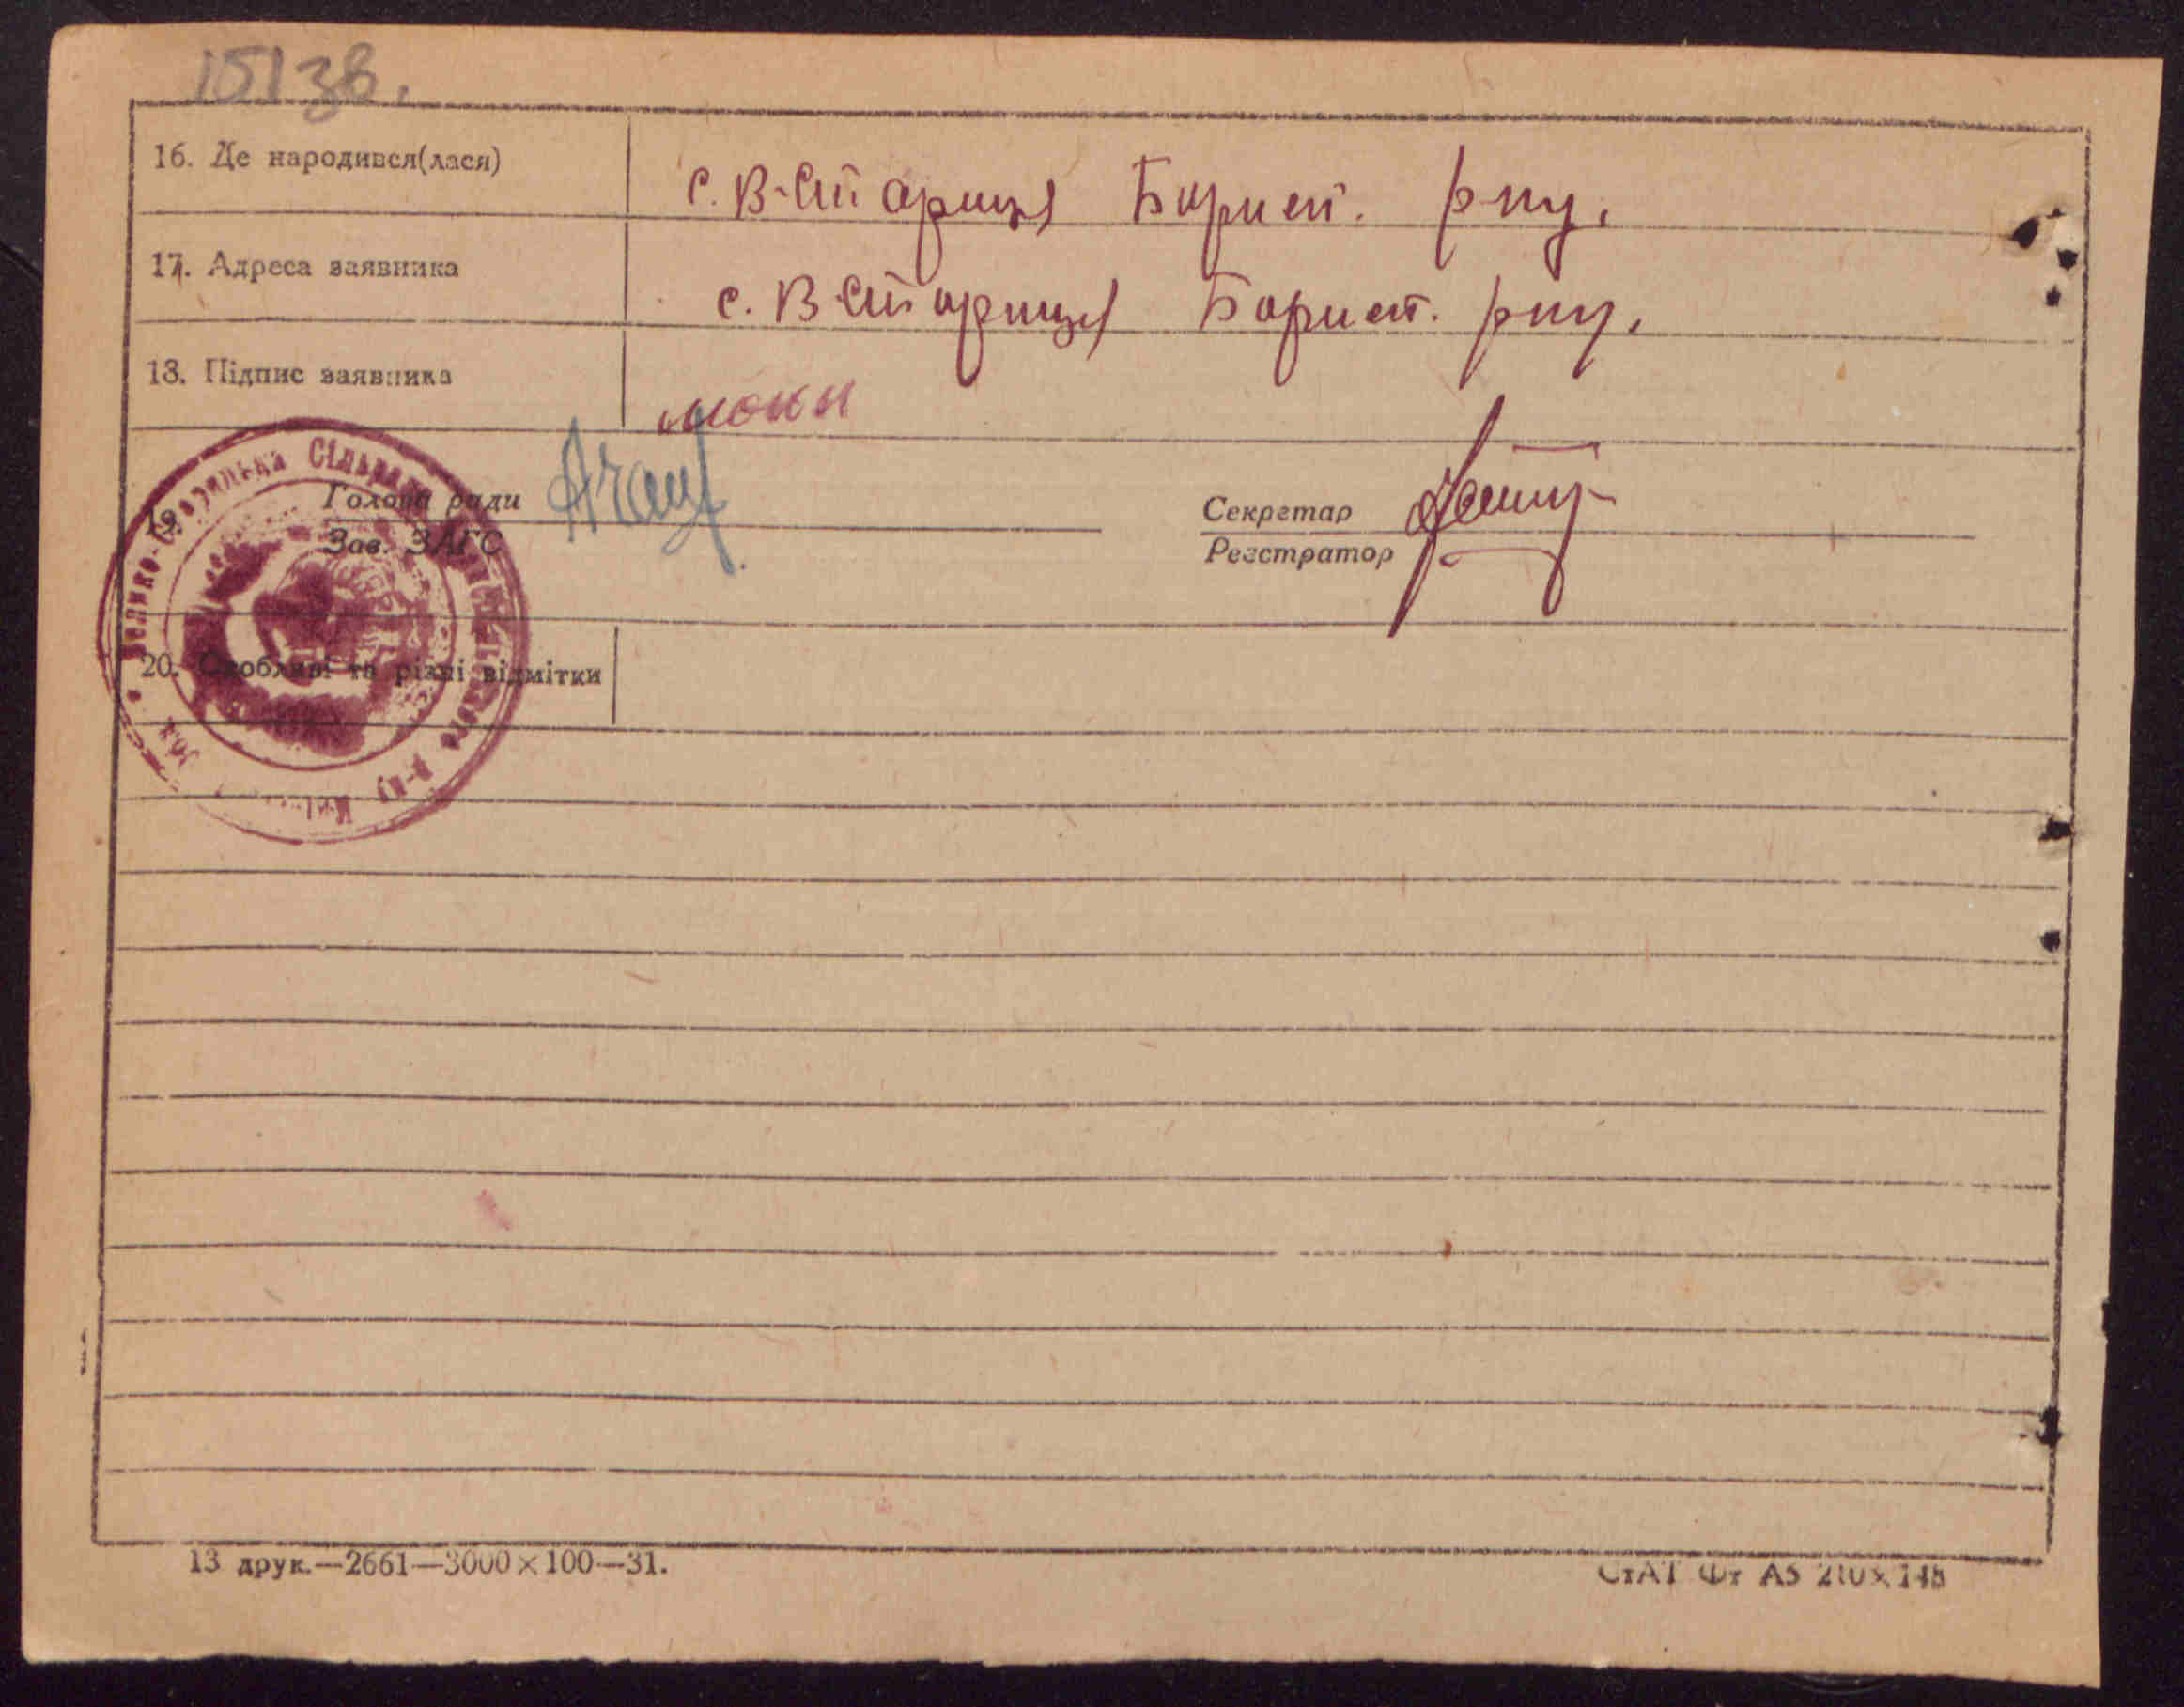 151зв.
16. Де народився(лася) с. В-Стариця Борисп. р-ну.
17. Адреса заявника с. В-Стариця Борисп. р-ну.
18. Підпис заявника
19. Голова ради Секретар
Зав. ЗАГС Реєстратор
20. Особливі та різні відмітки
13 друк.—2661—3000×100—31. СтАТ Фт А5 210×148